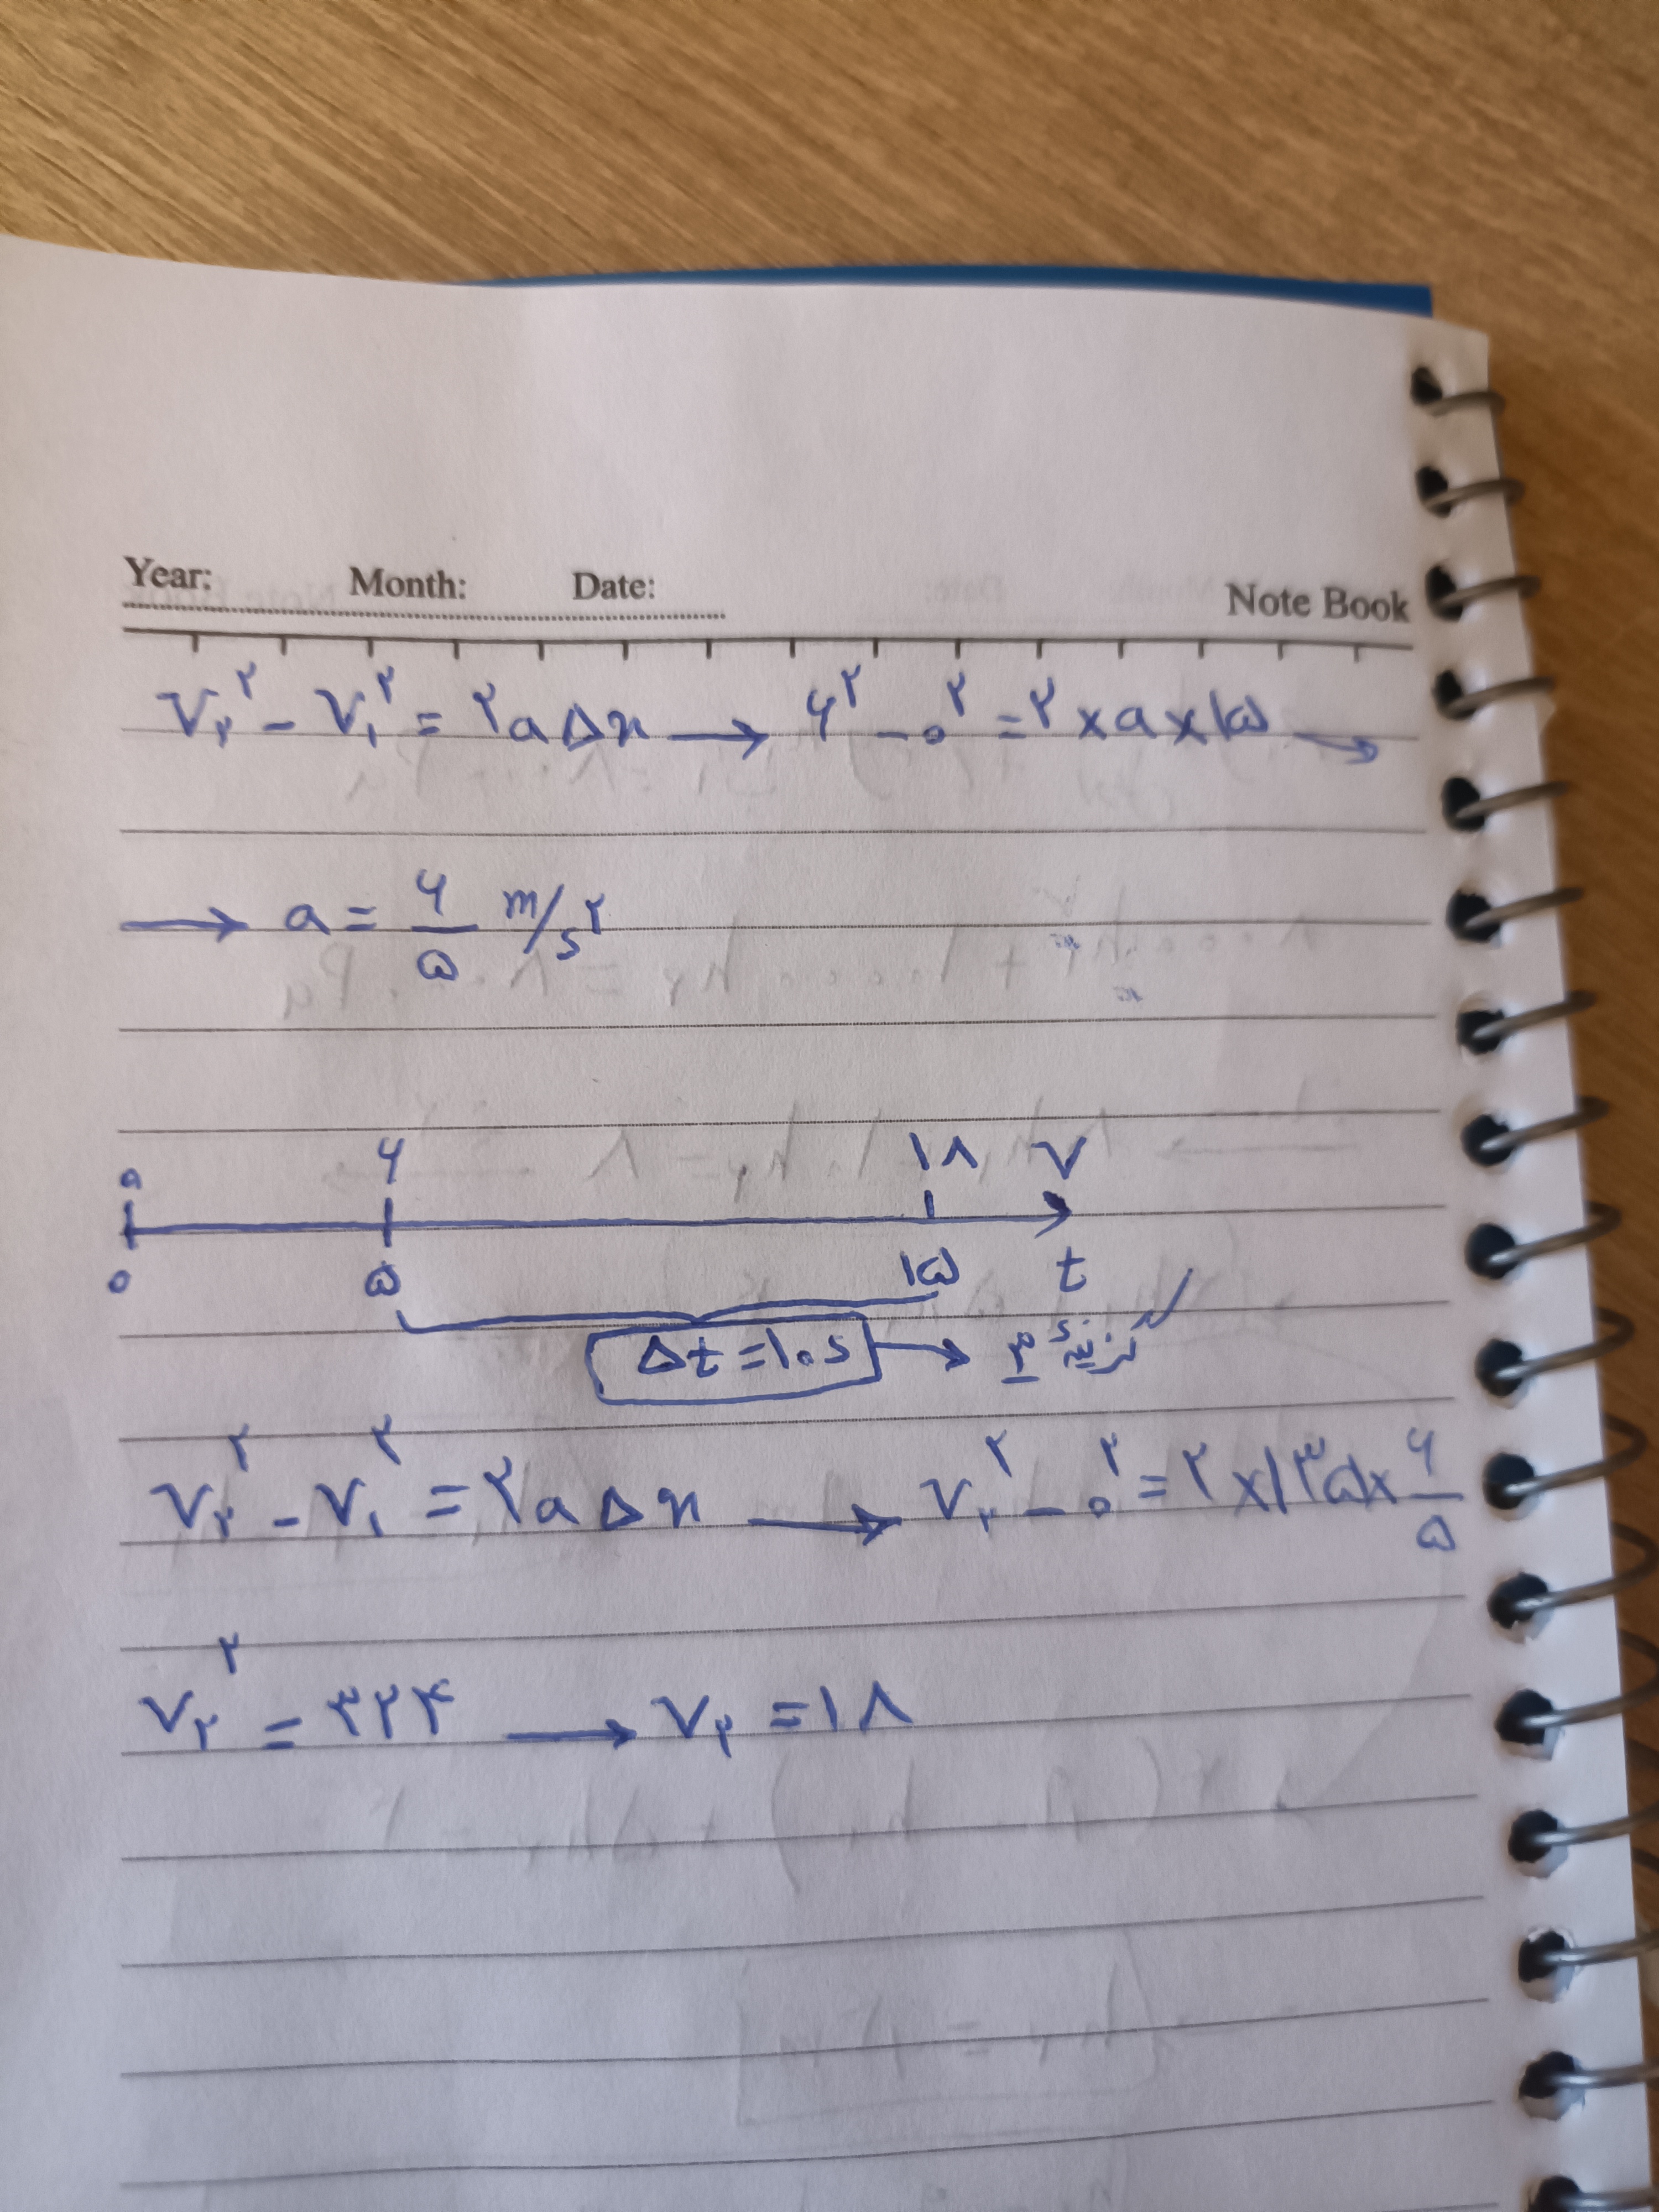 Year: Month: Date: Note Book
V₂² - V₁² = ۲aΔx → ۶² - ۰² = ۲ × a × ۱۵ →
→ a = ۶/۵ m/s²
۰ ۶ ۱۸ V
۰ ۵ ۱۵ t
Δt = ۱۰s → گزینه ۳
V₂² - V₁² = ۲aΔx → V₂² - ۰² = ۲ × ۱۳۵ × ۶/۵
V₂² = ۳۲۴ → V₂ = ۱۸